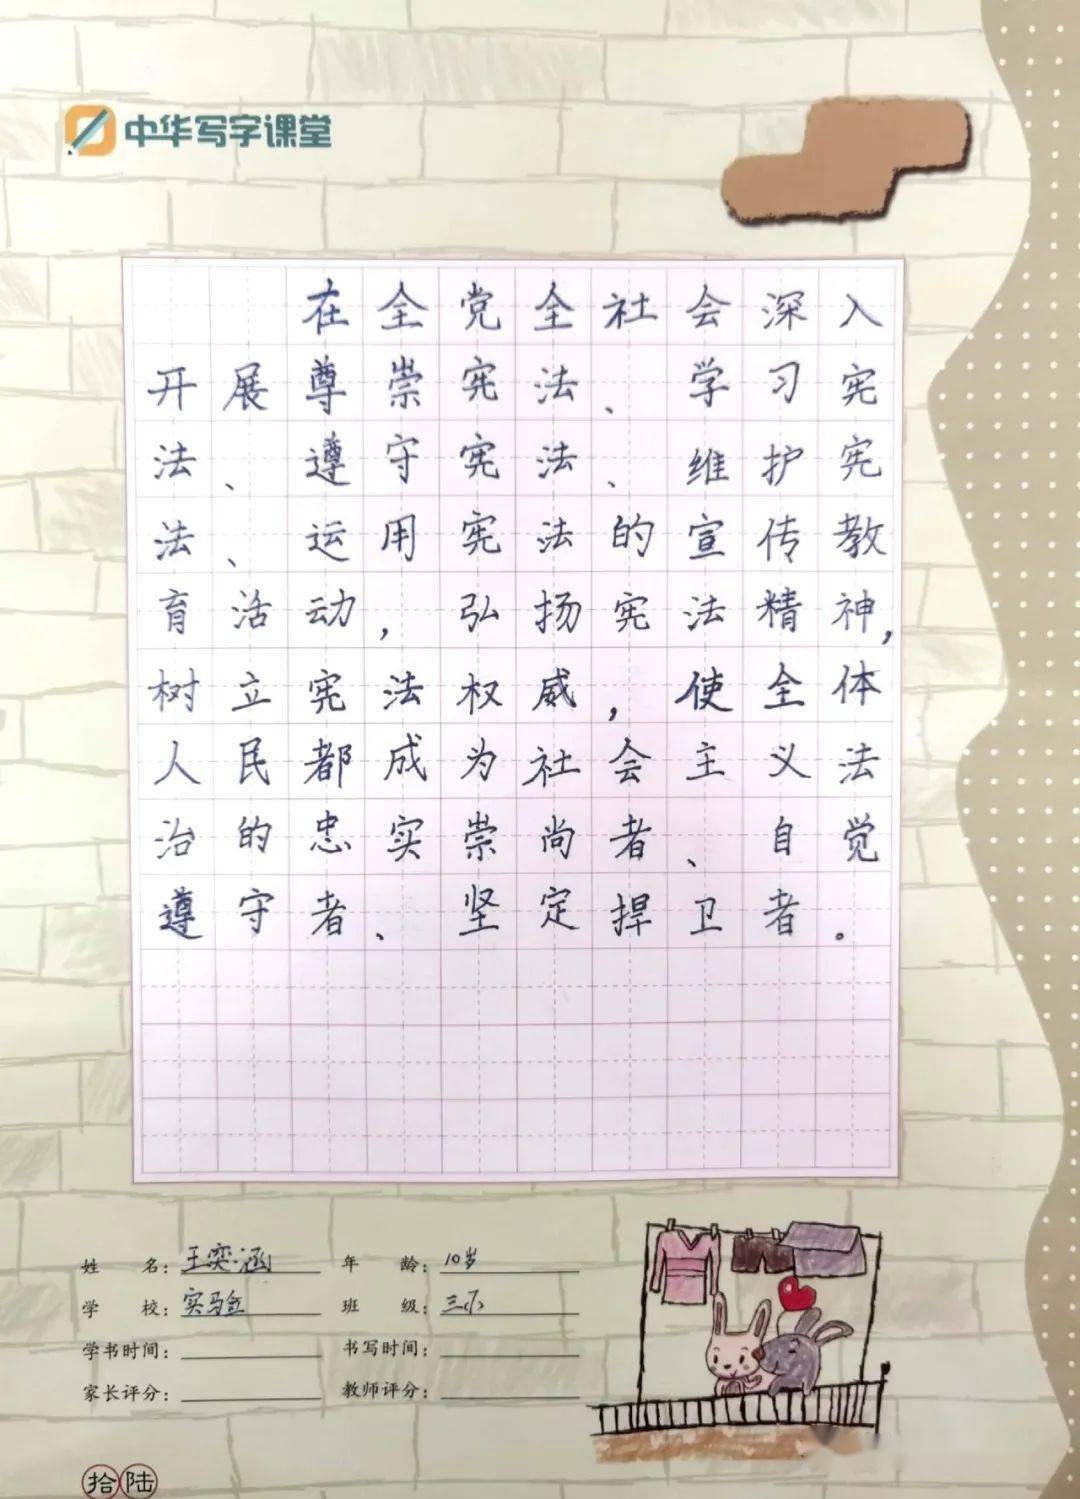 中华写字课堂
在全党全社会深入
开展尊崇宪法、学习宪
法、遵守宪法、维护宪
法、运用宪法的宣传教
育活动，弘扬宪法精神，
树立宪法权威，使全体
人民都成为社会主义法
治的忠实崇尚者、自觉
遵守者、坚定捍卫者。
姓 名：王奕涵 年 龄：10岁
学 校：实验 班 级：
学书时间： 书写时间：
家长评分： 教师评分：
拾陆